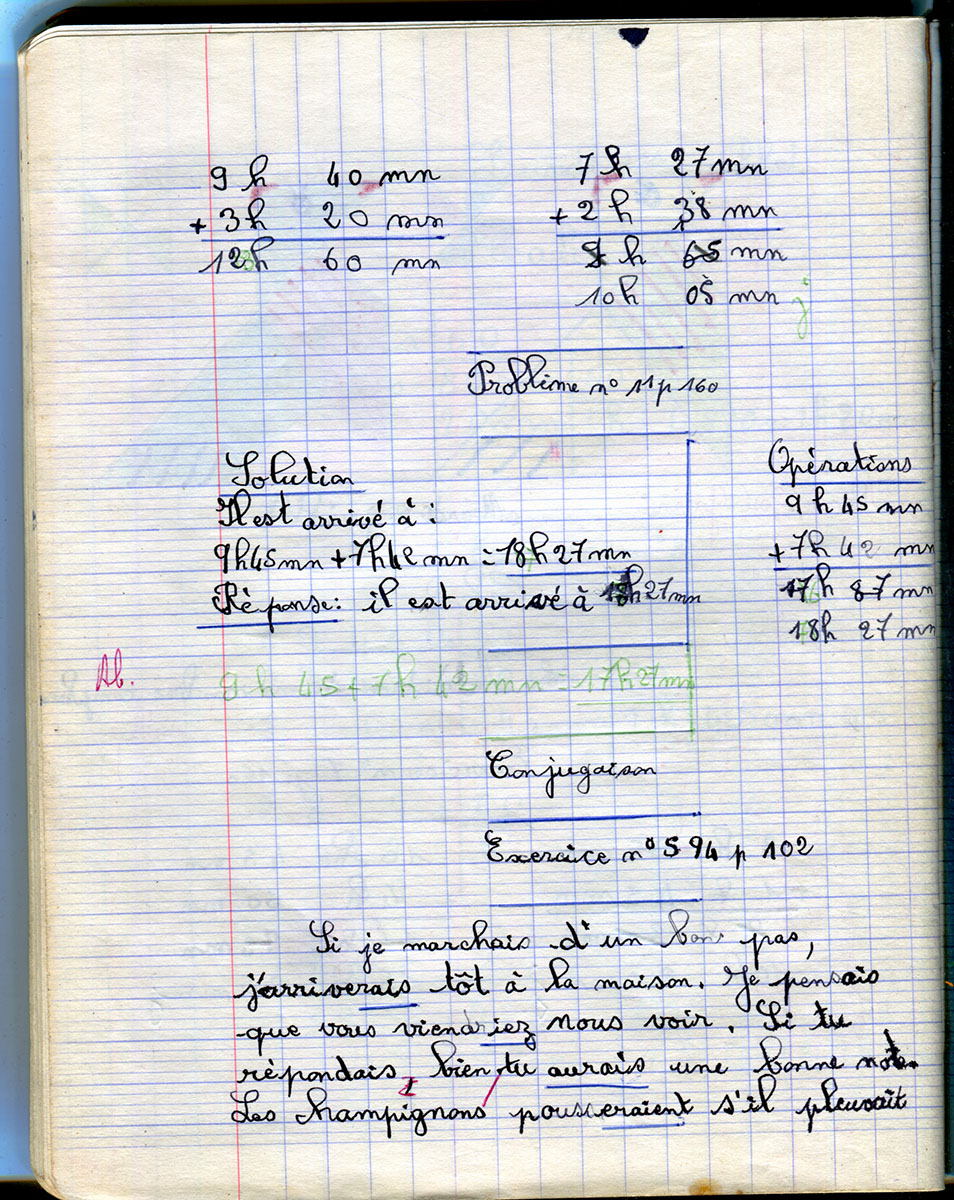 9 h 40 mn
+ 3 h 20 mn
12 h 60 mn
7 h 27 mn
+ 2 h 38 mn
9 h 65 mn
10 h 05 mn
j
Problème n° 11 p 160
Solution
Il est arrivé à :
9h45mn + 7h42 mn = 18h27mn
Réponse : il est arrivé à 18h27mn
Opérations
9 h 45 mn
+ 7h 42 mn
17h 87 mn
18h 27 mn
Ab.
9 h 45 + 7 h 42 mn = 17h27mn
Conjugaison
Exercice n° 594 p 102
Si je marchais d'un bon pas,
j'arriverais tôt à la maison. Je pensais
que vous viendriez nous voir. Si tu
répondais bien tu aurais une bonne note.
Les champignons pousseraient s'il pleuvait